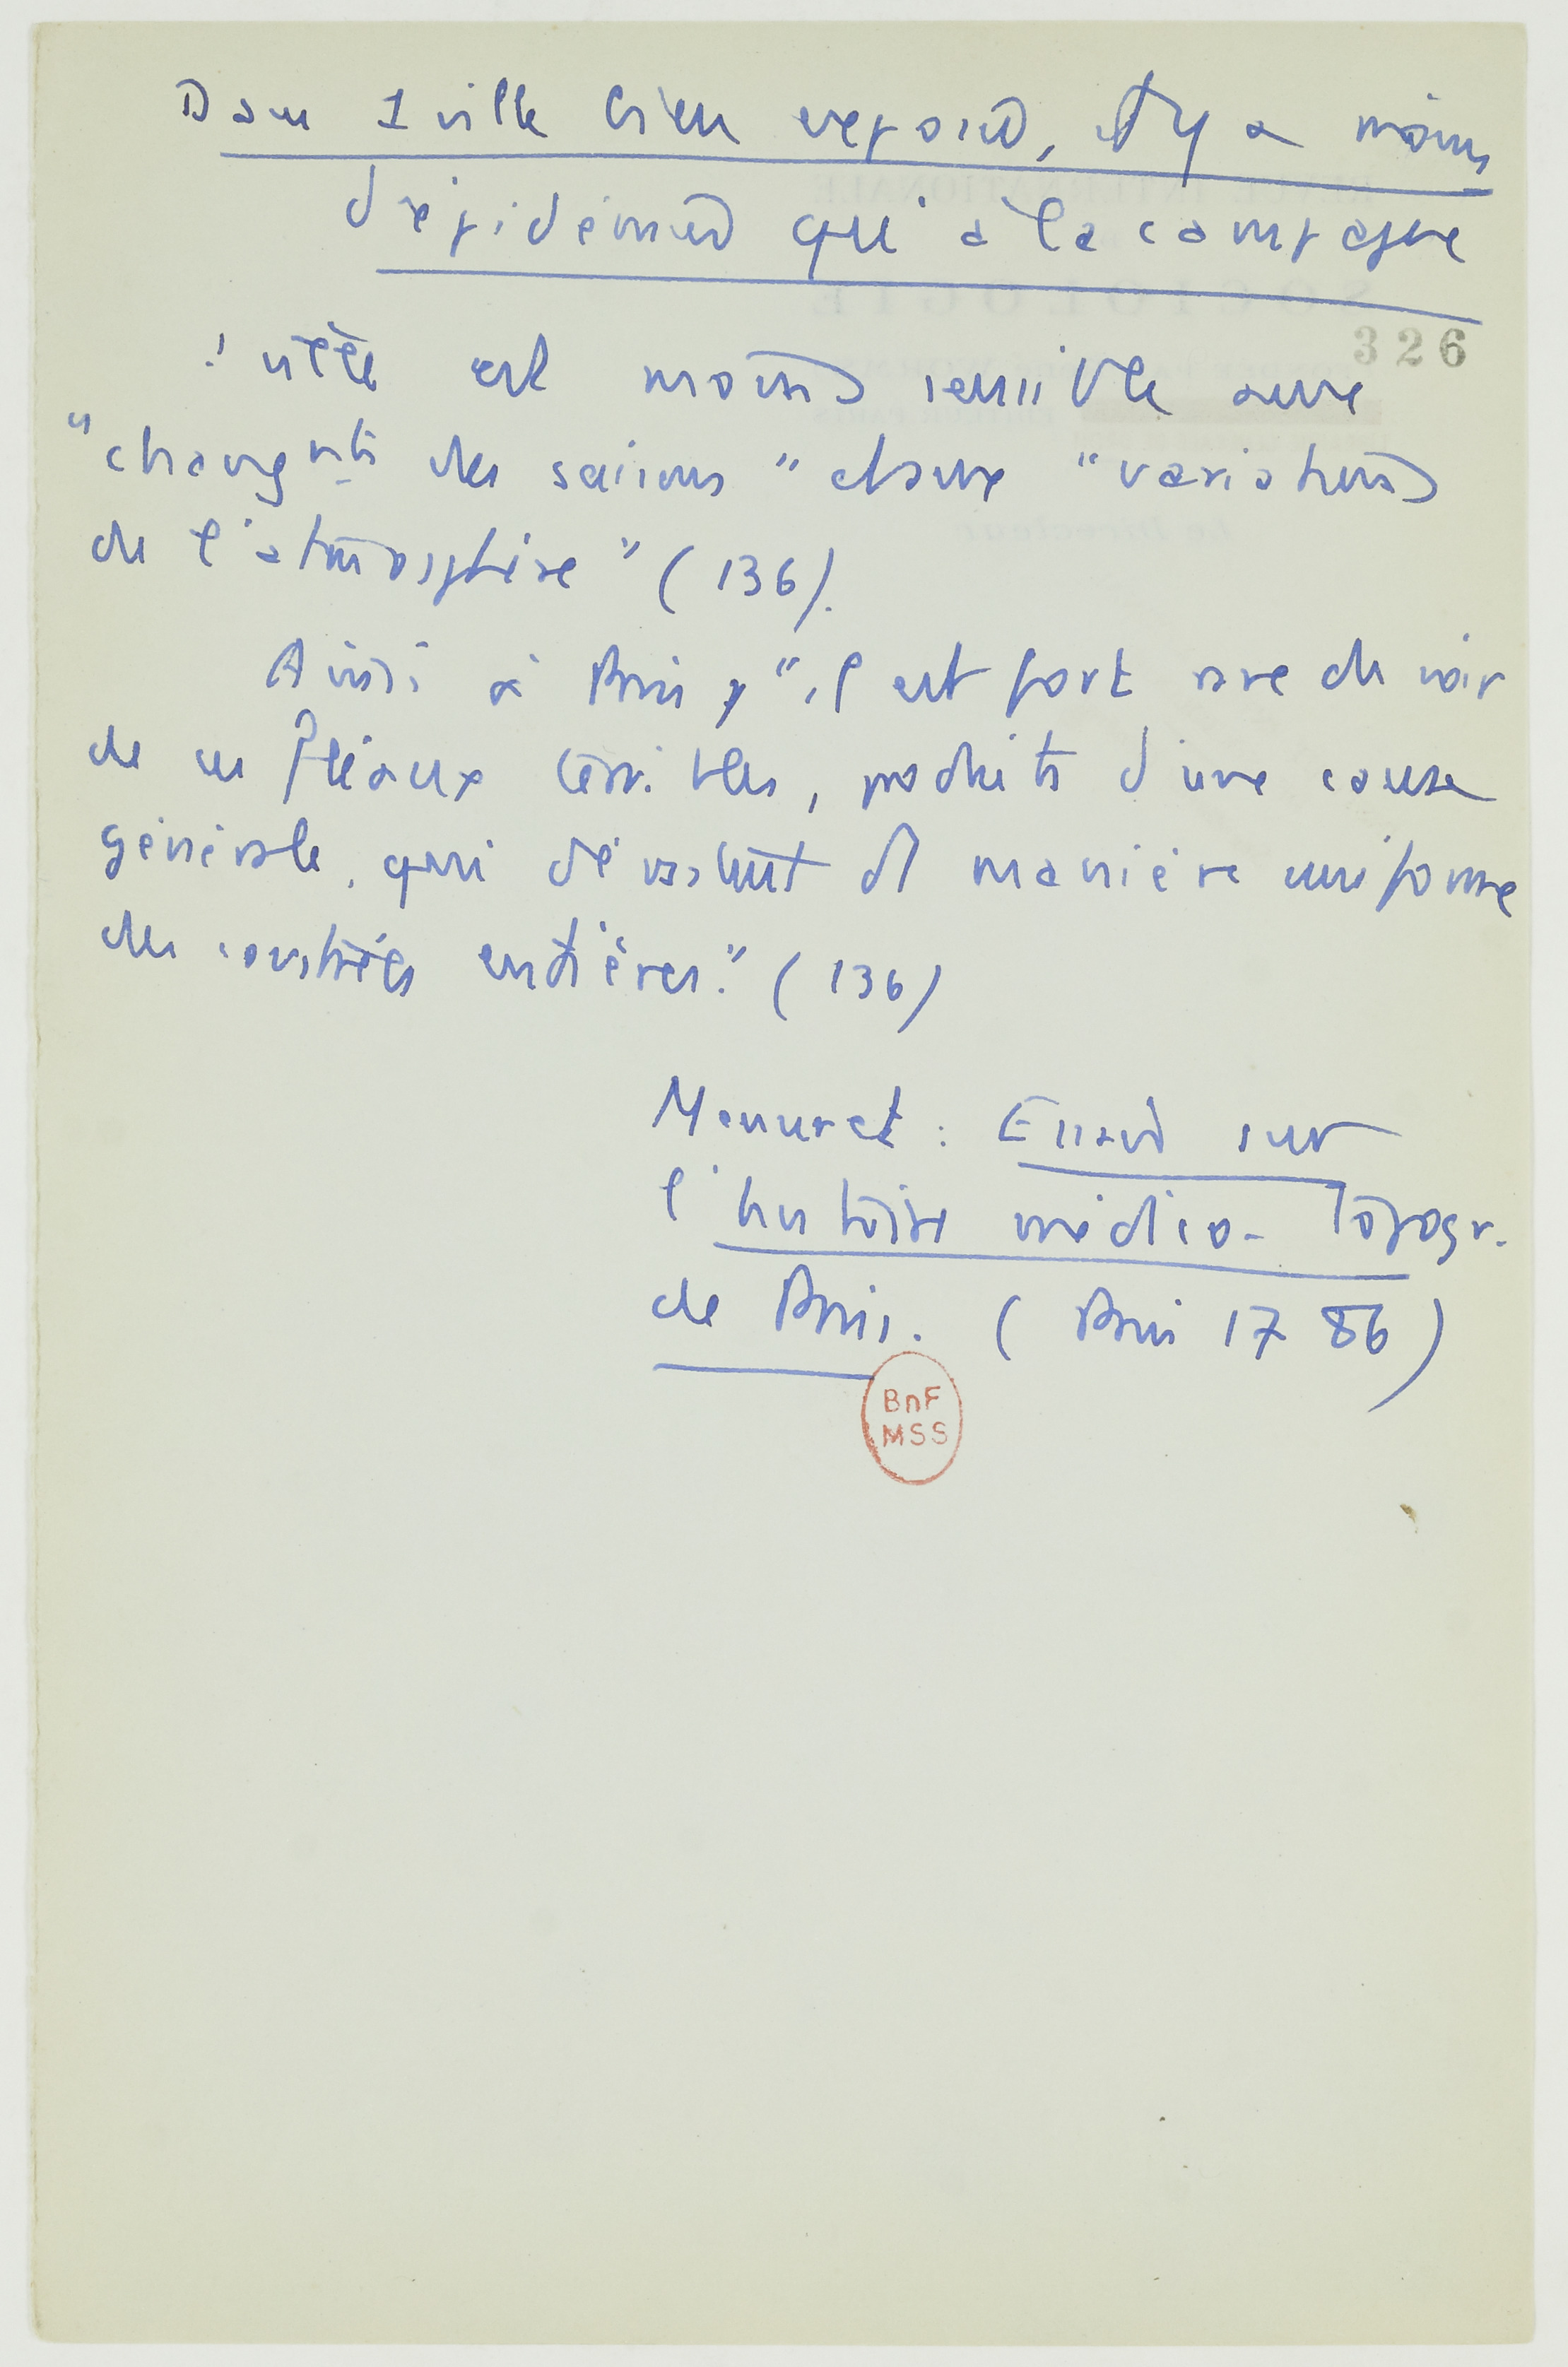 Dans 1 ville bien exposée, il y a moins
d'épidémies qu'à la campagne
326
1 ville est moins sensible aux
"changmts des saisons" et aux "variations
de l'atmosphère" (136).
Ainsi à Paris, "il est fort rare de voir
de ces fléaux terribles, produits d'une cause
générale, qui dévastent de manière uniforme
des contrées entières." (136)
Menuret : Essai sur
l'histoire médico-topogr.
de Paris. (Paris 1786)
BnF
MSS